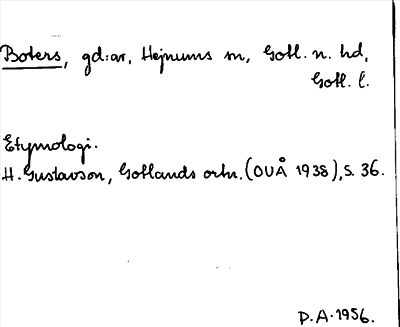 Boters, gd:ar, Hejnums sn, Gotl. n. hd,
Gotl. l.
Etymologi.
H. Gustavson, Gotlands ortn. (OUÅ 1938), s. 36.
P.A. 1956.